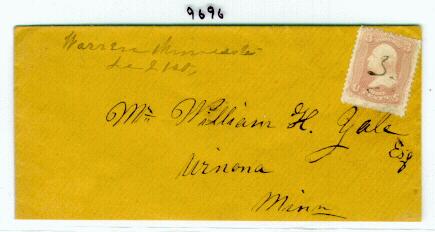 9696
Warren Minnesota
3
Mr. William H. Yale
Esq
Winona
Minn